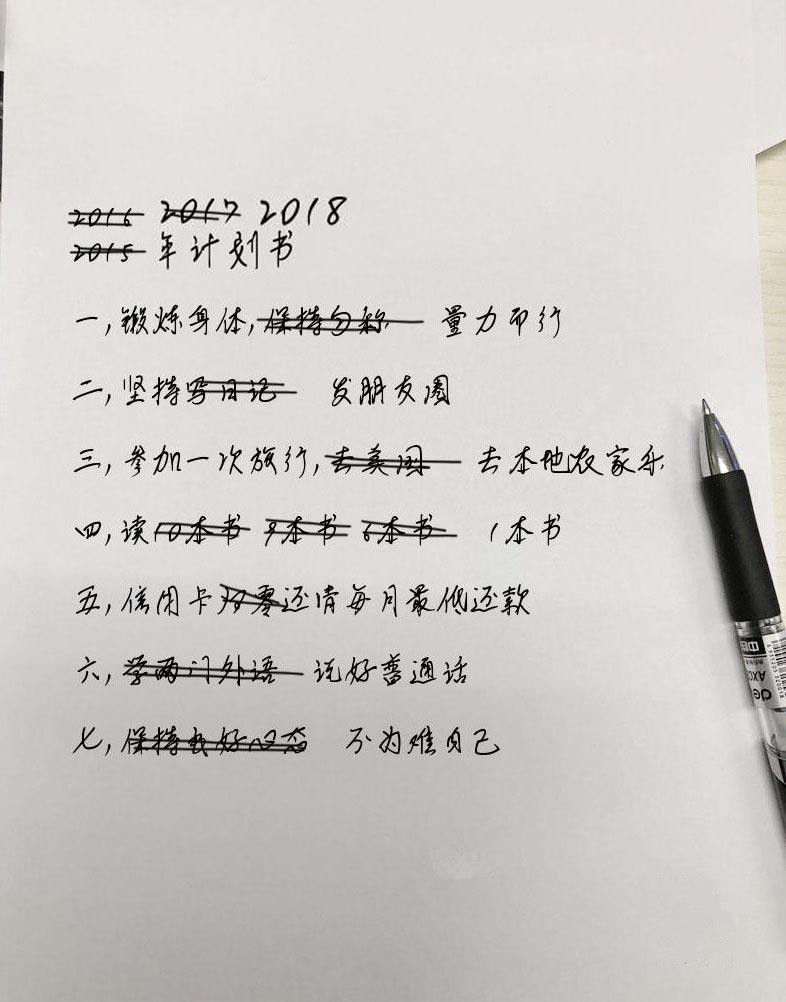 2016 2017 2018
2015 年计划书
一,锻炼身体,保持匀称 量力而行
二,坚持写日记 发朋友圈
三,参加一次旅行,去美国 去本地农家乐
四,读10本书 9本书 6本书 1本书
五,信用卡归零还清每月最低还款
六,学两门外语 说好普通话
七,保持良好心态 不为难自己